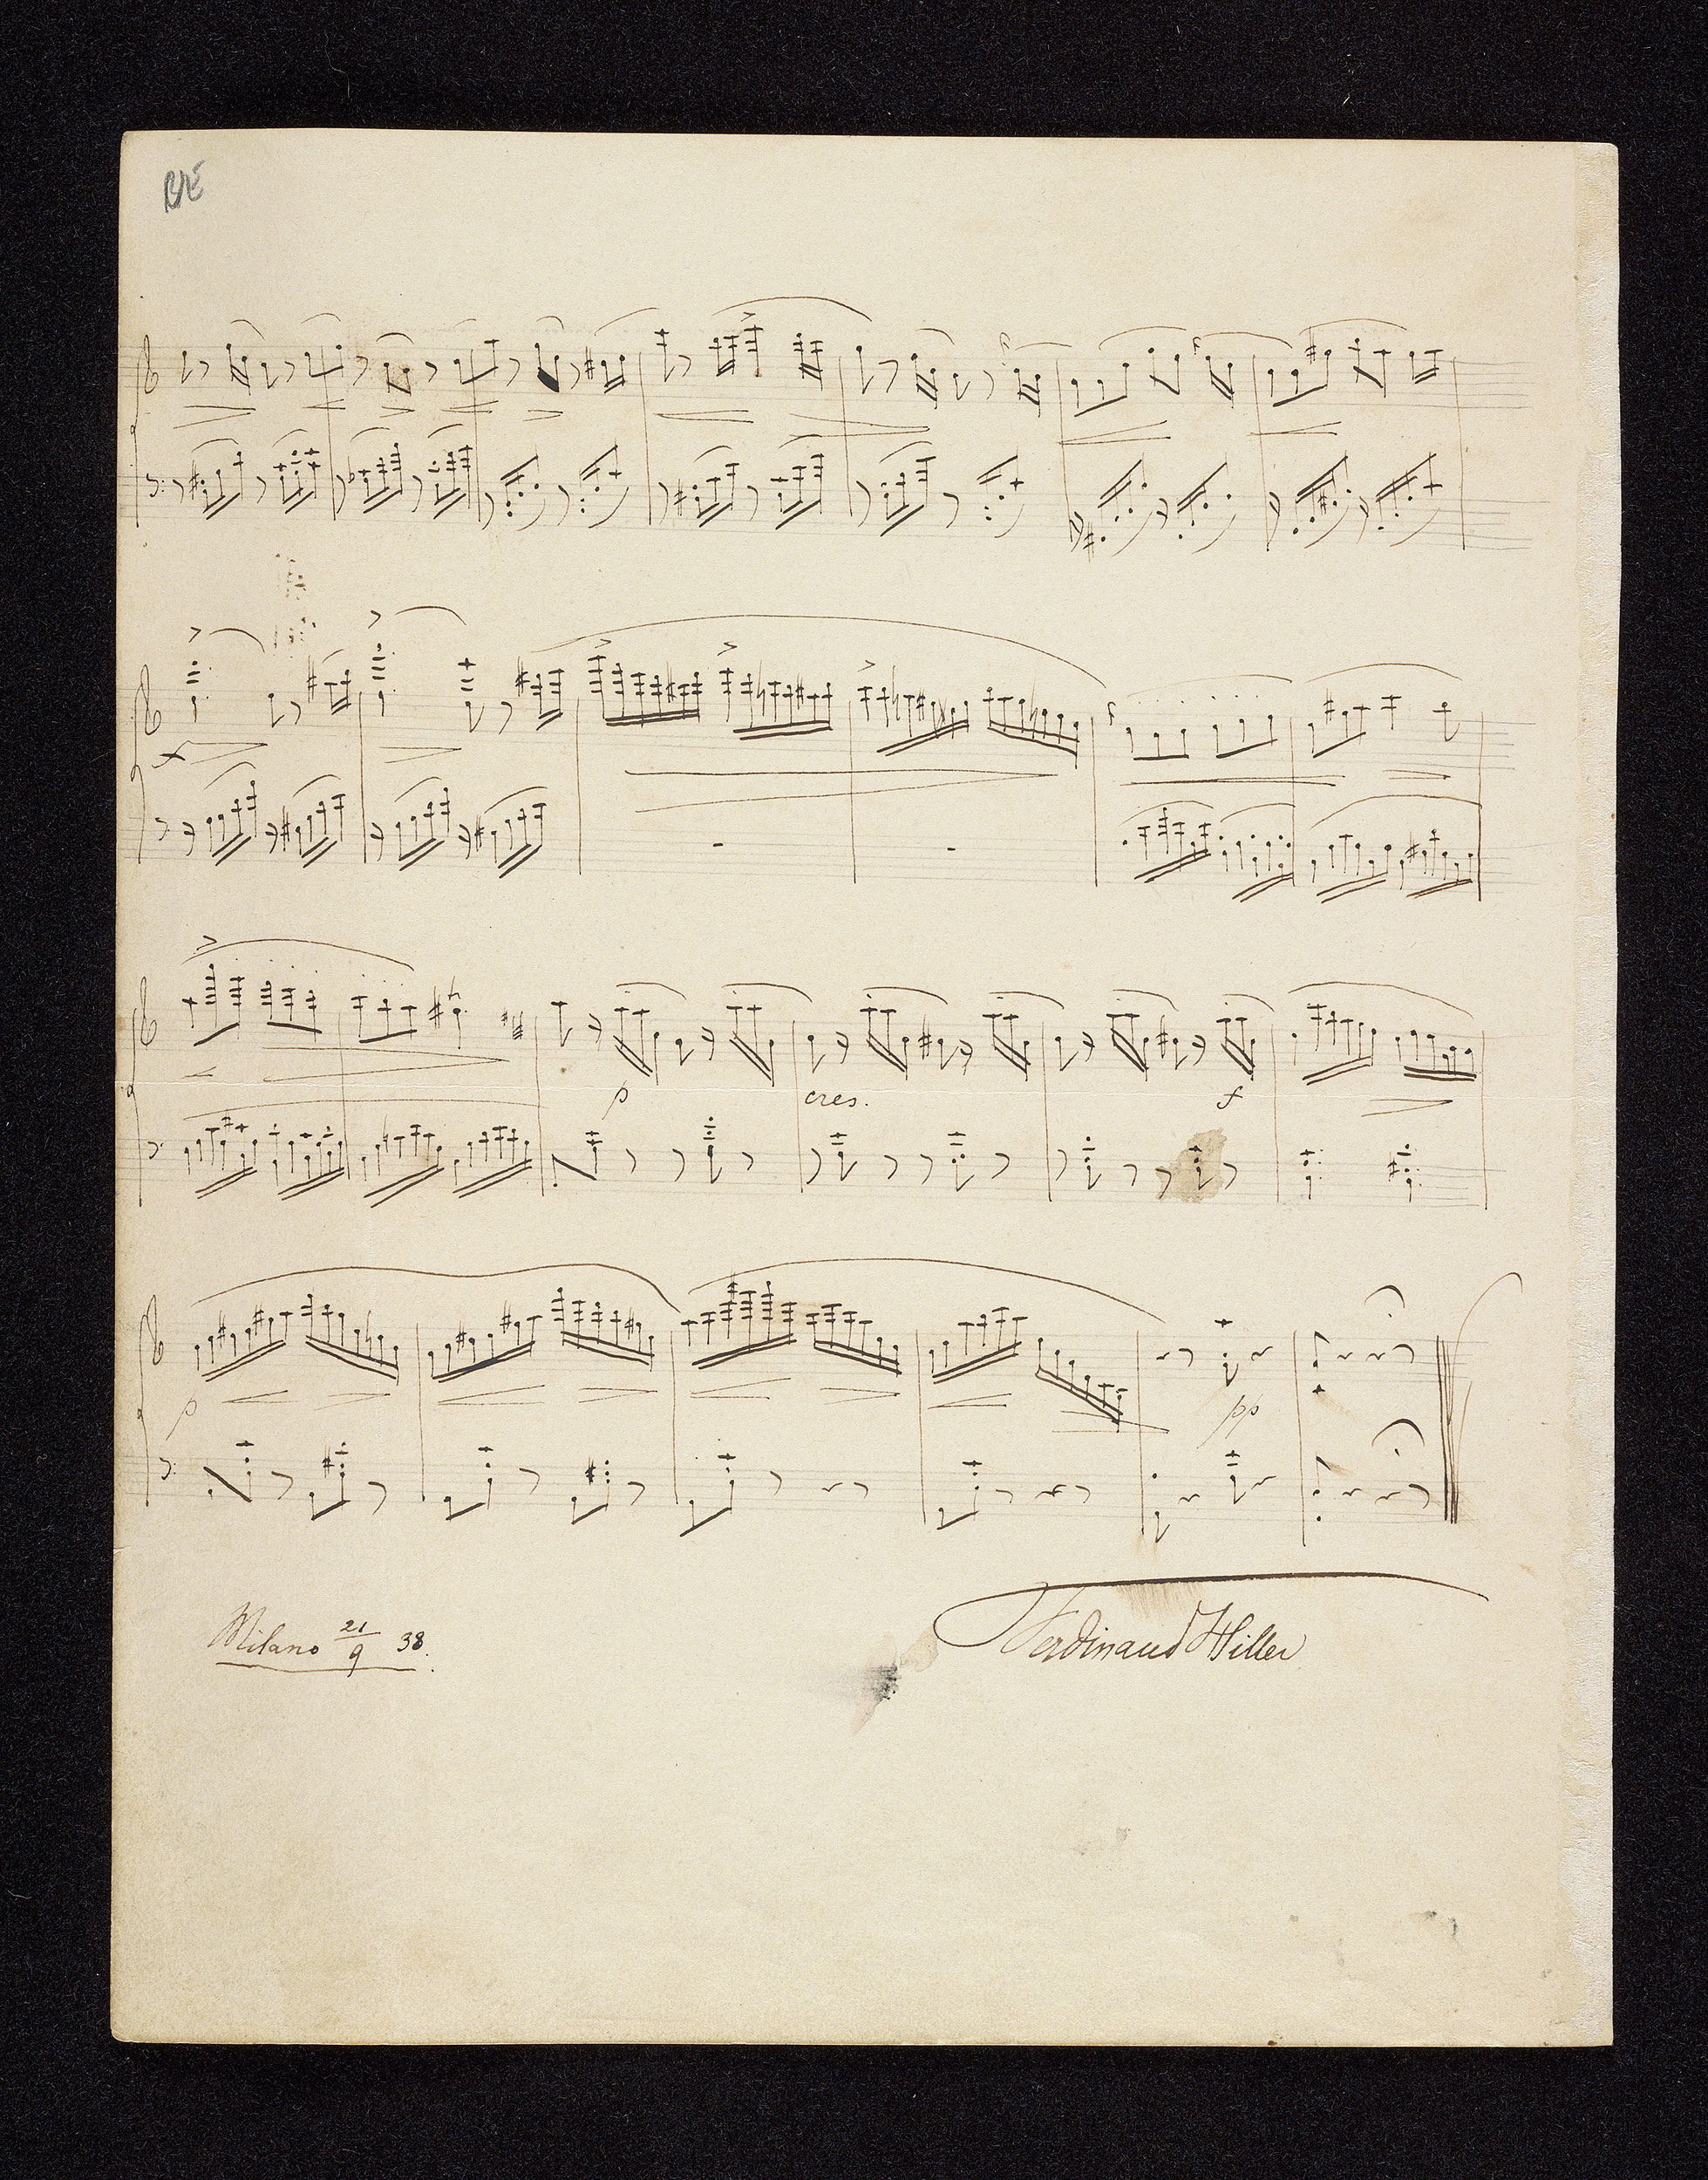 f
p cres. f
p pp
Milano 21/9 38.
Ferdinand Hiller